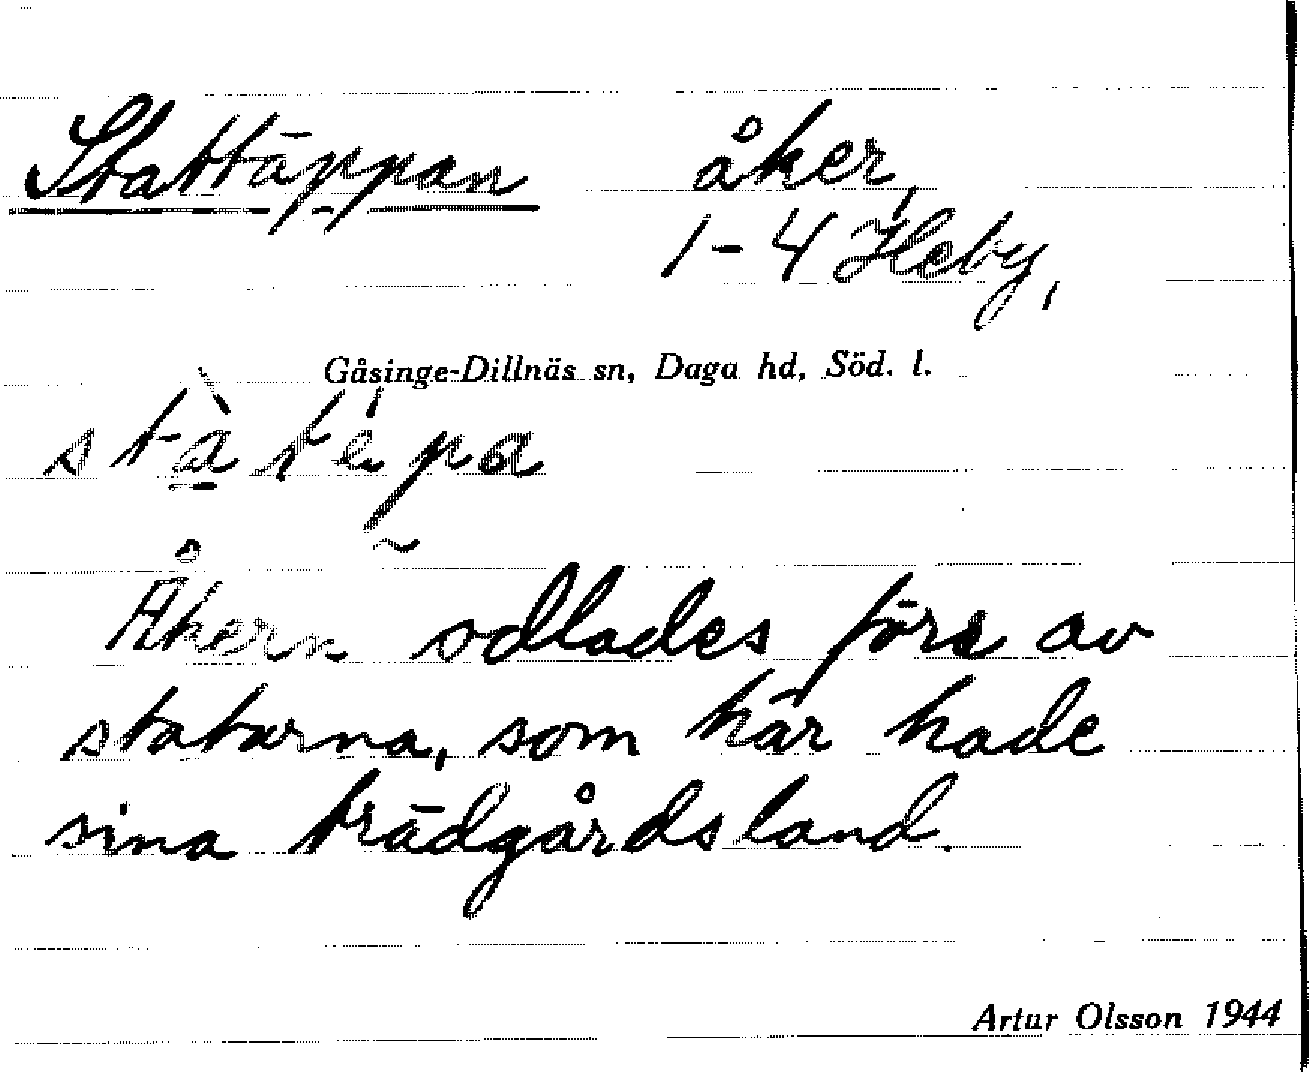 Stattäppan åker,
1-4 Heby,
Gåsinge-Dillnäs sn, Daga hd, Söd. l.
Åkern odlades förr av
statarna, som här hade
sina trädgårdsland.
Artur Olsson 1944